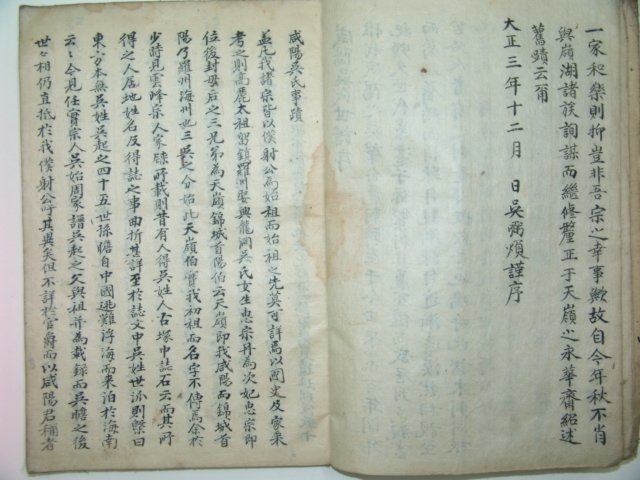 一家和樂則抑豈非吾宗之幸事歟故自今年秋不肖
與嶺湖諸族詢謀而繼修釐正于天嶺之永華齋紹述
舊蹟云爾
大正三年十二月 日吳 煩謹序
咸陽吳氏事蹟
益我諸宗皆以僕射公為始祖而始祖之先莫可詳焉以國史及家乘
考之則高麗太祖留鎮羅州娶興龍洞吳氏女生惠宗丹為次妃惠宗即
位後封母后之三兄弟為天嶺錦城首陽伯云天嶺即我咸陽而錦城首
陽乃羅州海州也三吳之分始此天嶺伯實我初祖而名字不傳焉余於
少時見雲峰宗人家牒所載則昔有人得吳姓人古塚中誌石云而其所
得之人居地姓名及得誌之事曲折其詳至於誌文中吳姓世派則槩曰
東方本無吳姓吳起之四十五世孫瞻自中國逃難浮海而來泊於海南
云云今見任實宗人吳始周家譜吳起之父與祖并為載錄而吳瞻之後
世世相仍直抵於我僕射公吁其異矣但不詳於官爵而以咸陽君稱者